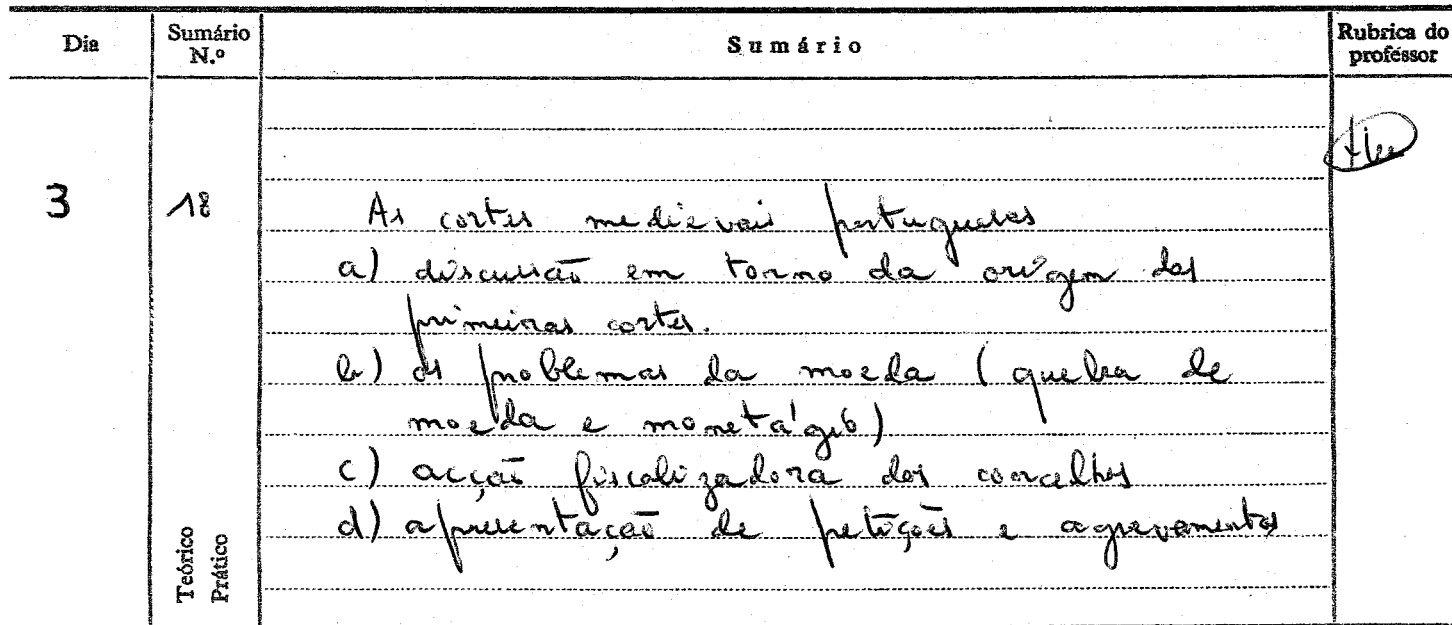 Dia
Sumário
N.º
Sumário
Rubrica do
proféssor
3
18
As cortes medievais portuguesas
a) discussão em torno da origem das
primeiras cortes.
b) os problemas da moeda (quebra de
moeda e monetágio)
c) acção fiscalizadora dos concelhos
d) apresentação de petições e agravamentos
Teórico
Prático